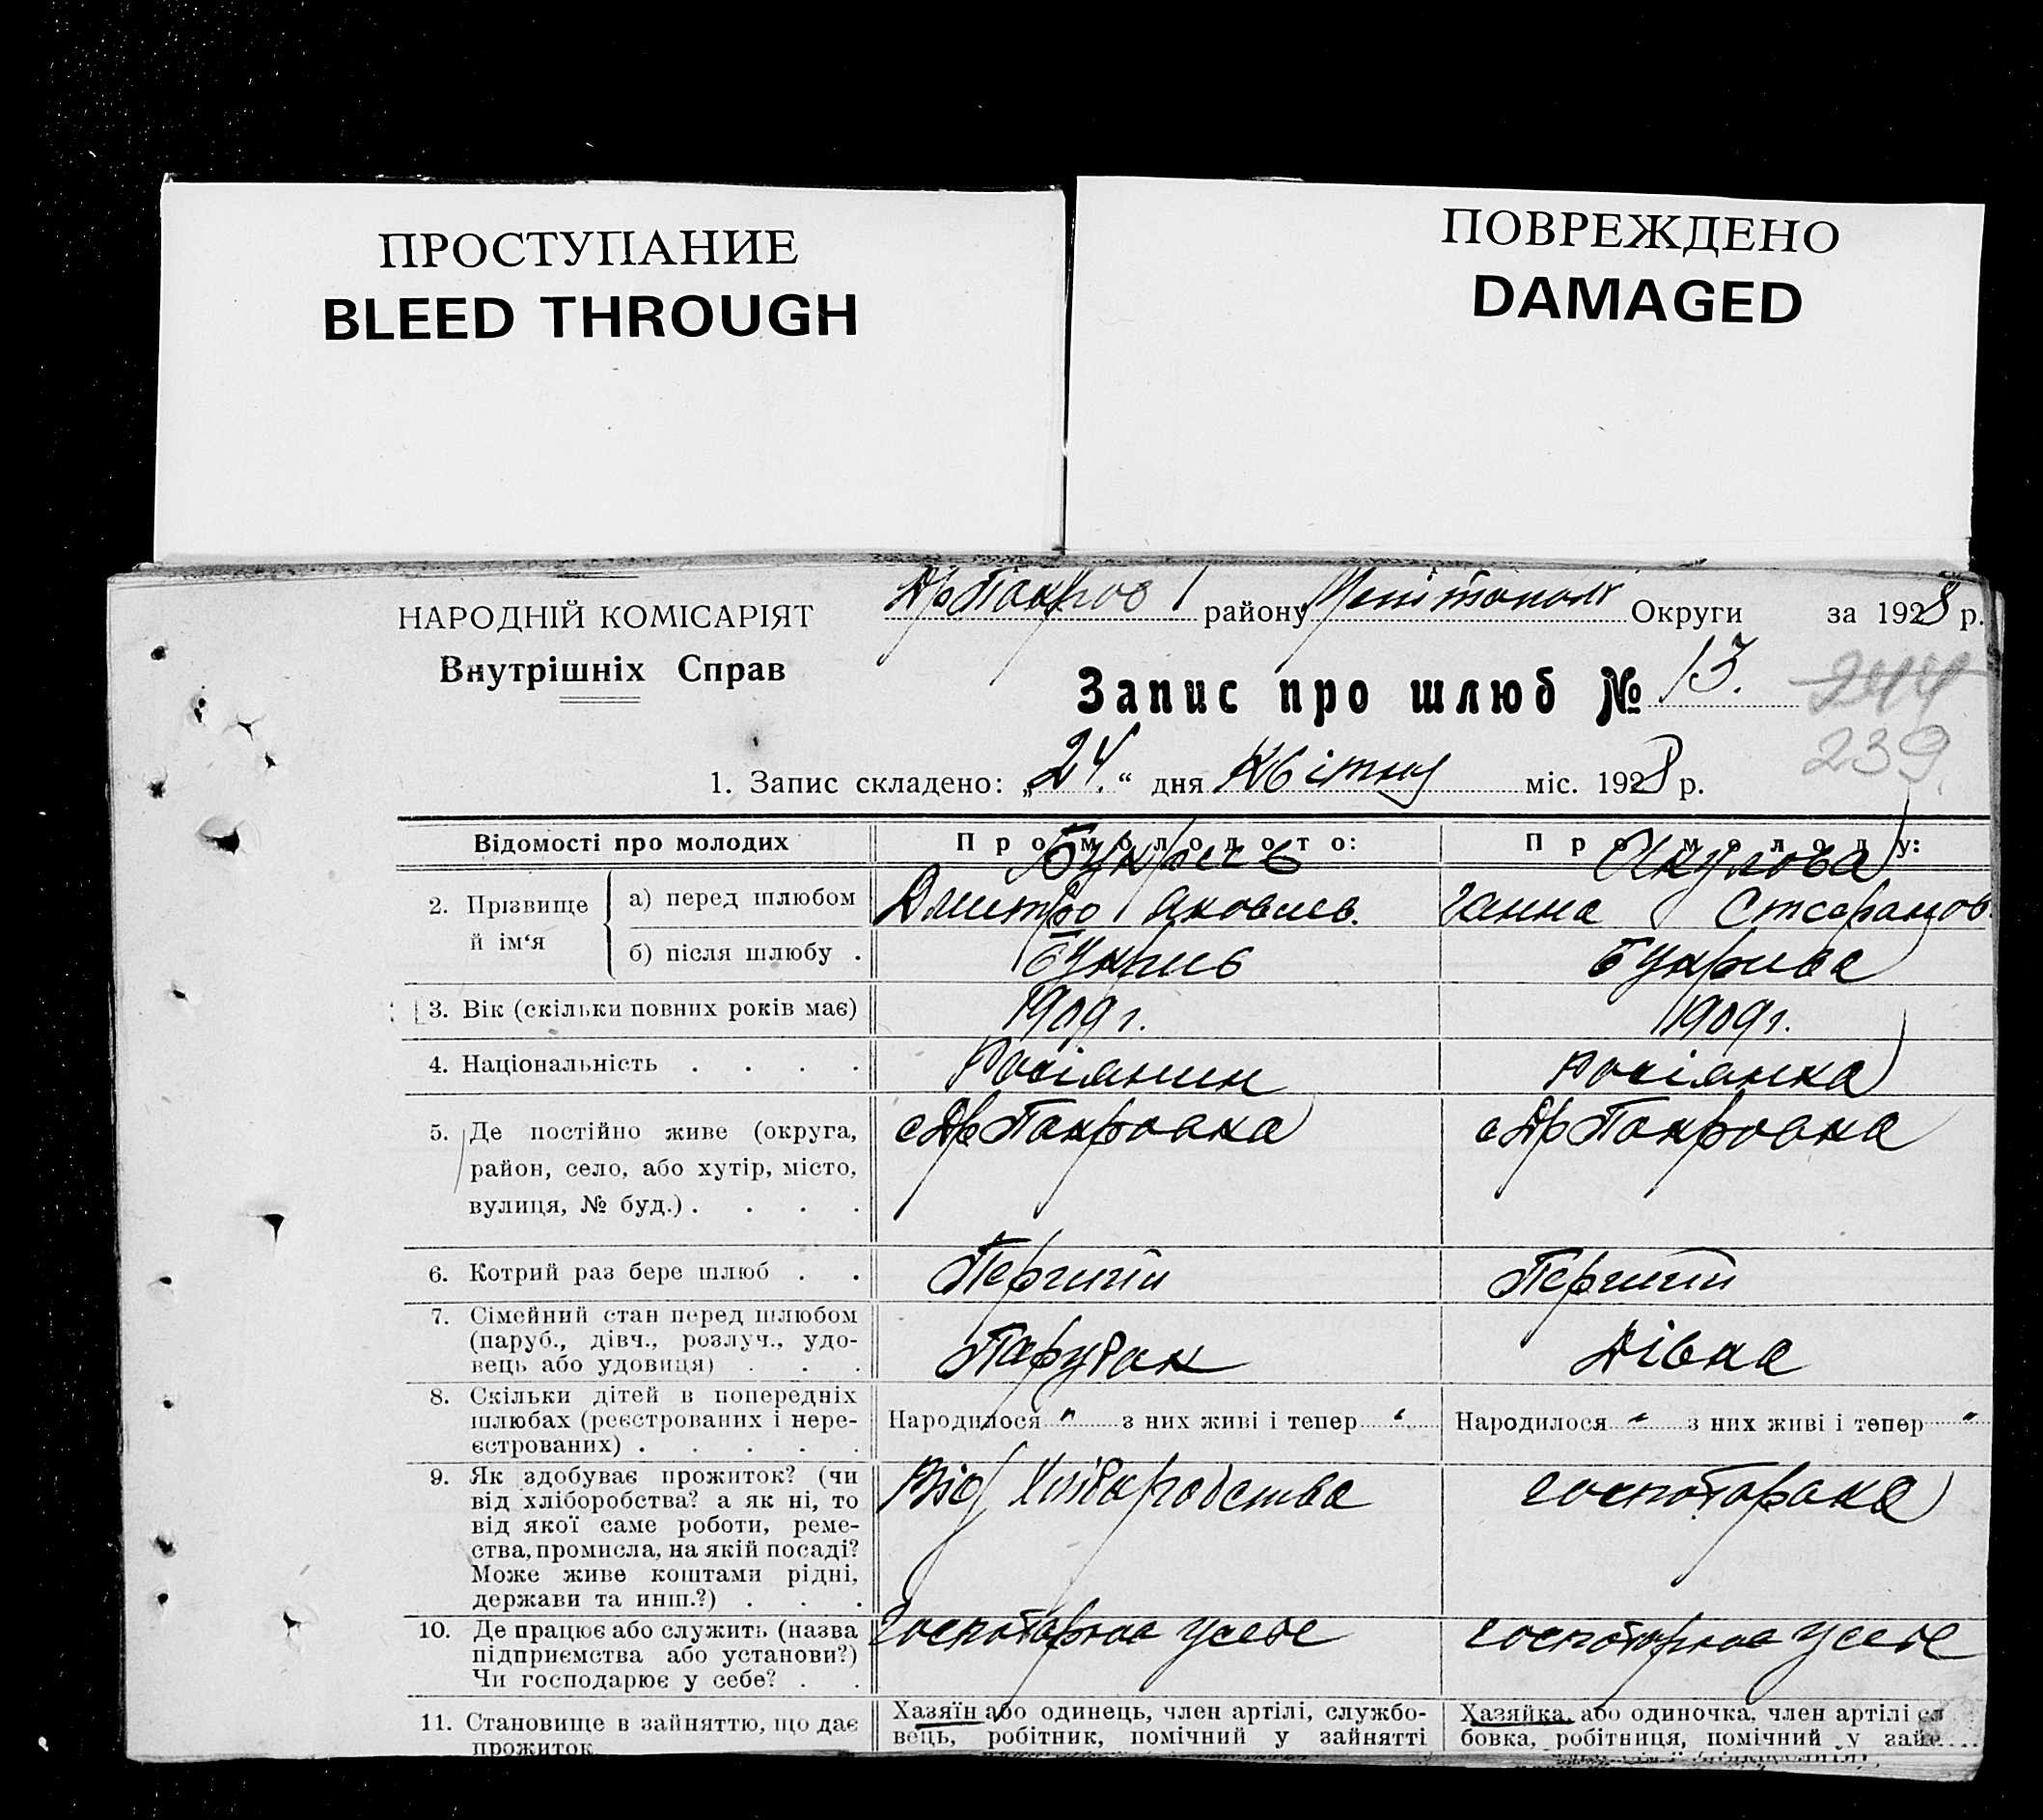 ПРОСТУПАНИЕ
BLEED THROUGH
ПОВРЕЖДЕНО
DAMAGED
НАРОДНІЙ КОМІСАРІЯТ
Внутрішніх Справ
району Округи за 1928 р.
Запис про шлюб № 13.
244
239
1. Запис складено: „24.“ дня Квітня міс. 1928 р.
Відомості про молодих
Про молодого:
Про молоду:
2. Прізвище й ім‘я
а) перед шлюбом
Дмитро Яковлев.
Акулова
Ганна
б) після шлюбу .
3. Вік (скільки повних років має)
1909 г.
1909 г.
4. Національність . . . .
Росіянин
Росіянка
5. Де постійно живе (округа,
район, село, або хутір, місто,
вулиця, № буд.) . . . .
с Др Покровка
с Др Покровка
6. Котрий раз бере шлюб . .
Перший
Перший
7. Сімейний стан перед шлюбом
(паруб., дівч., розлуч., удо-
вець або удовиця) . . .
Парубак
Дівка
8. Скільки дітей в попередніх
шлюбах (реєстрованих і нере-
єстрованих) . . . . .
Народилося " з них живі і тепер "
Народилося " з них живі і тепер "
9. Як здобуває прожиток? (чи
від хліборобства? а як ні, то
від якої саме роботи, реме-
ства, промисла, на якій посаді?
Може живе коштами рідні,
держави та инш.?) . . .
Від Хліборобства
10. Де працює або служить (назва
підприємства або установи?)
Чи господарює у себе? . .
11. Становище в зайняттю, що дає
прожиток
Хазяїн або одинець, член артілі, службо-
вець, робітник, помічний у зайнятті
Хазяйка, або одиночка, член артілі
бовка, робітниця, помічний у